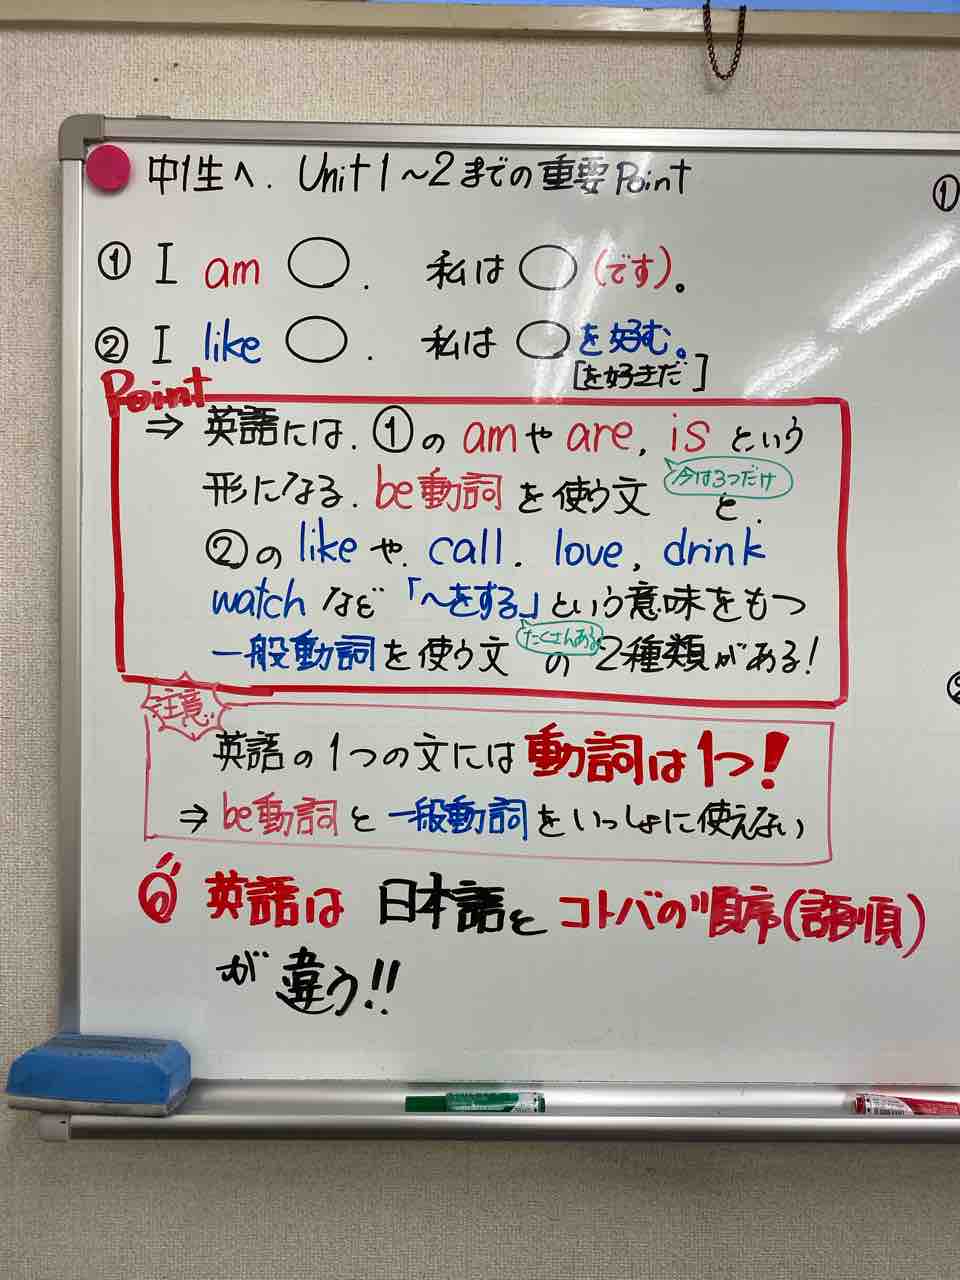 中1生へ. Unit1〜2までの重要Point
① I am ◯. 私は◯(です)。
② I like ◯. 私は◯を好む。
[を好きだ]
Point
⇒ 英語には.①のamやare, isという
形になる.be動詞を使う文と.
今は3つだけ
②のlikeや.call. love, drink
watchなど「〜をする」という意味をもつ
一般動詞を使う文の2種類がある!
たくさんある
注意
英語の1つの文には動詞は1つ!
⇒ be動詞と一般動詞をいっしょに使えない
英語は日本語とコトバの順序(語順)
が違う!!
①